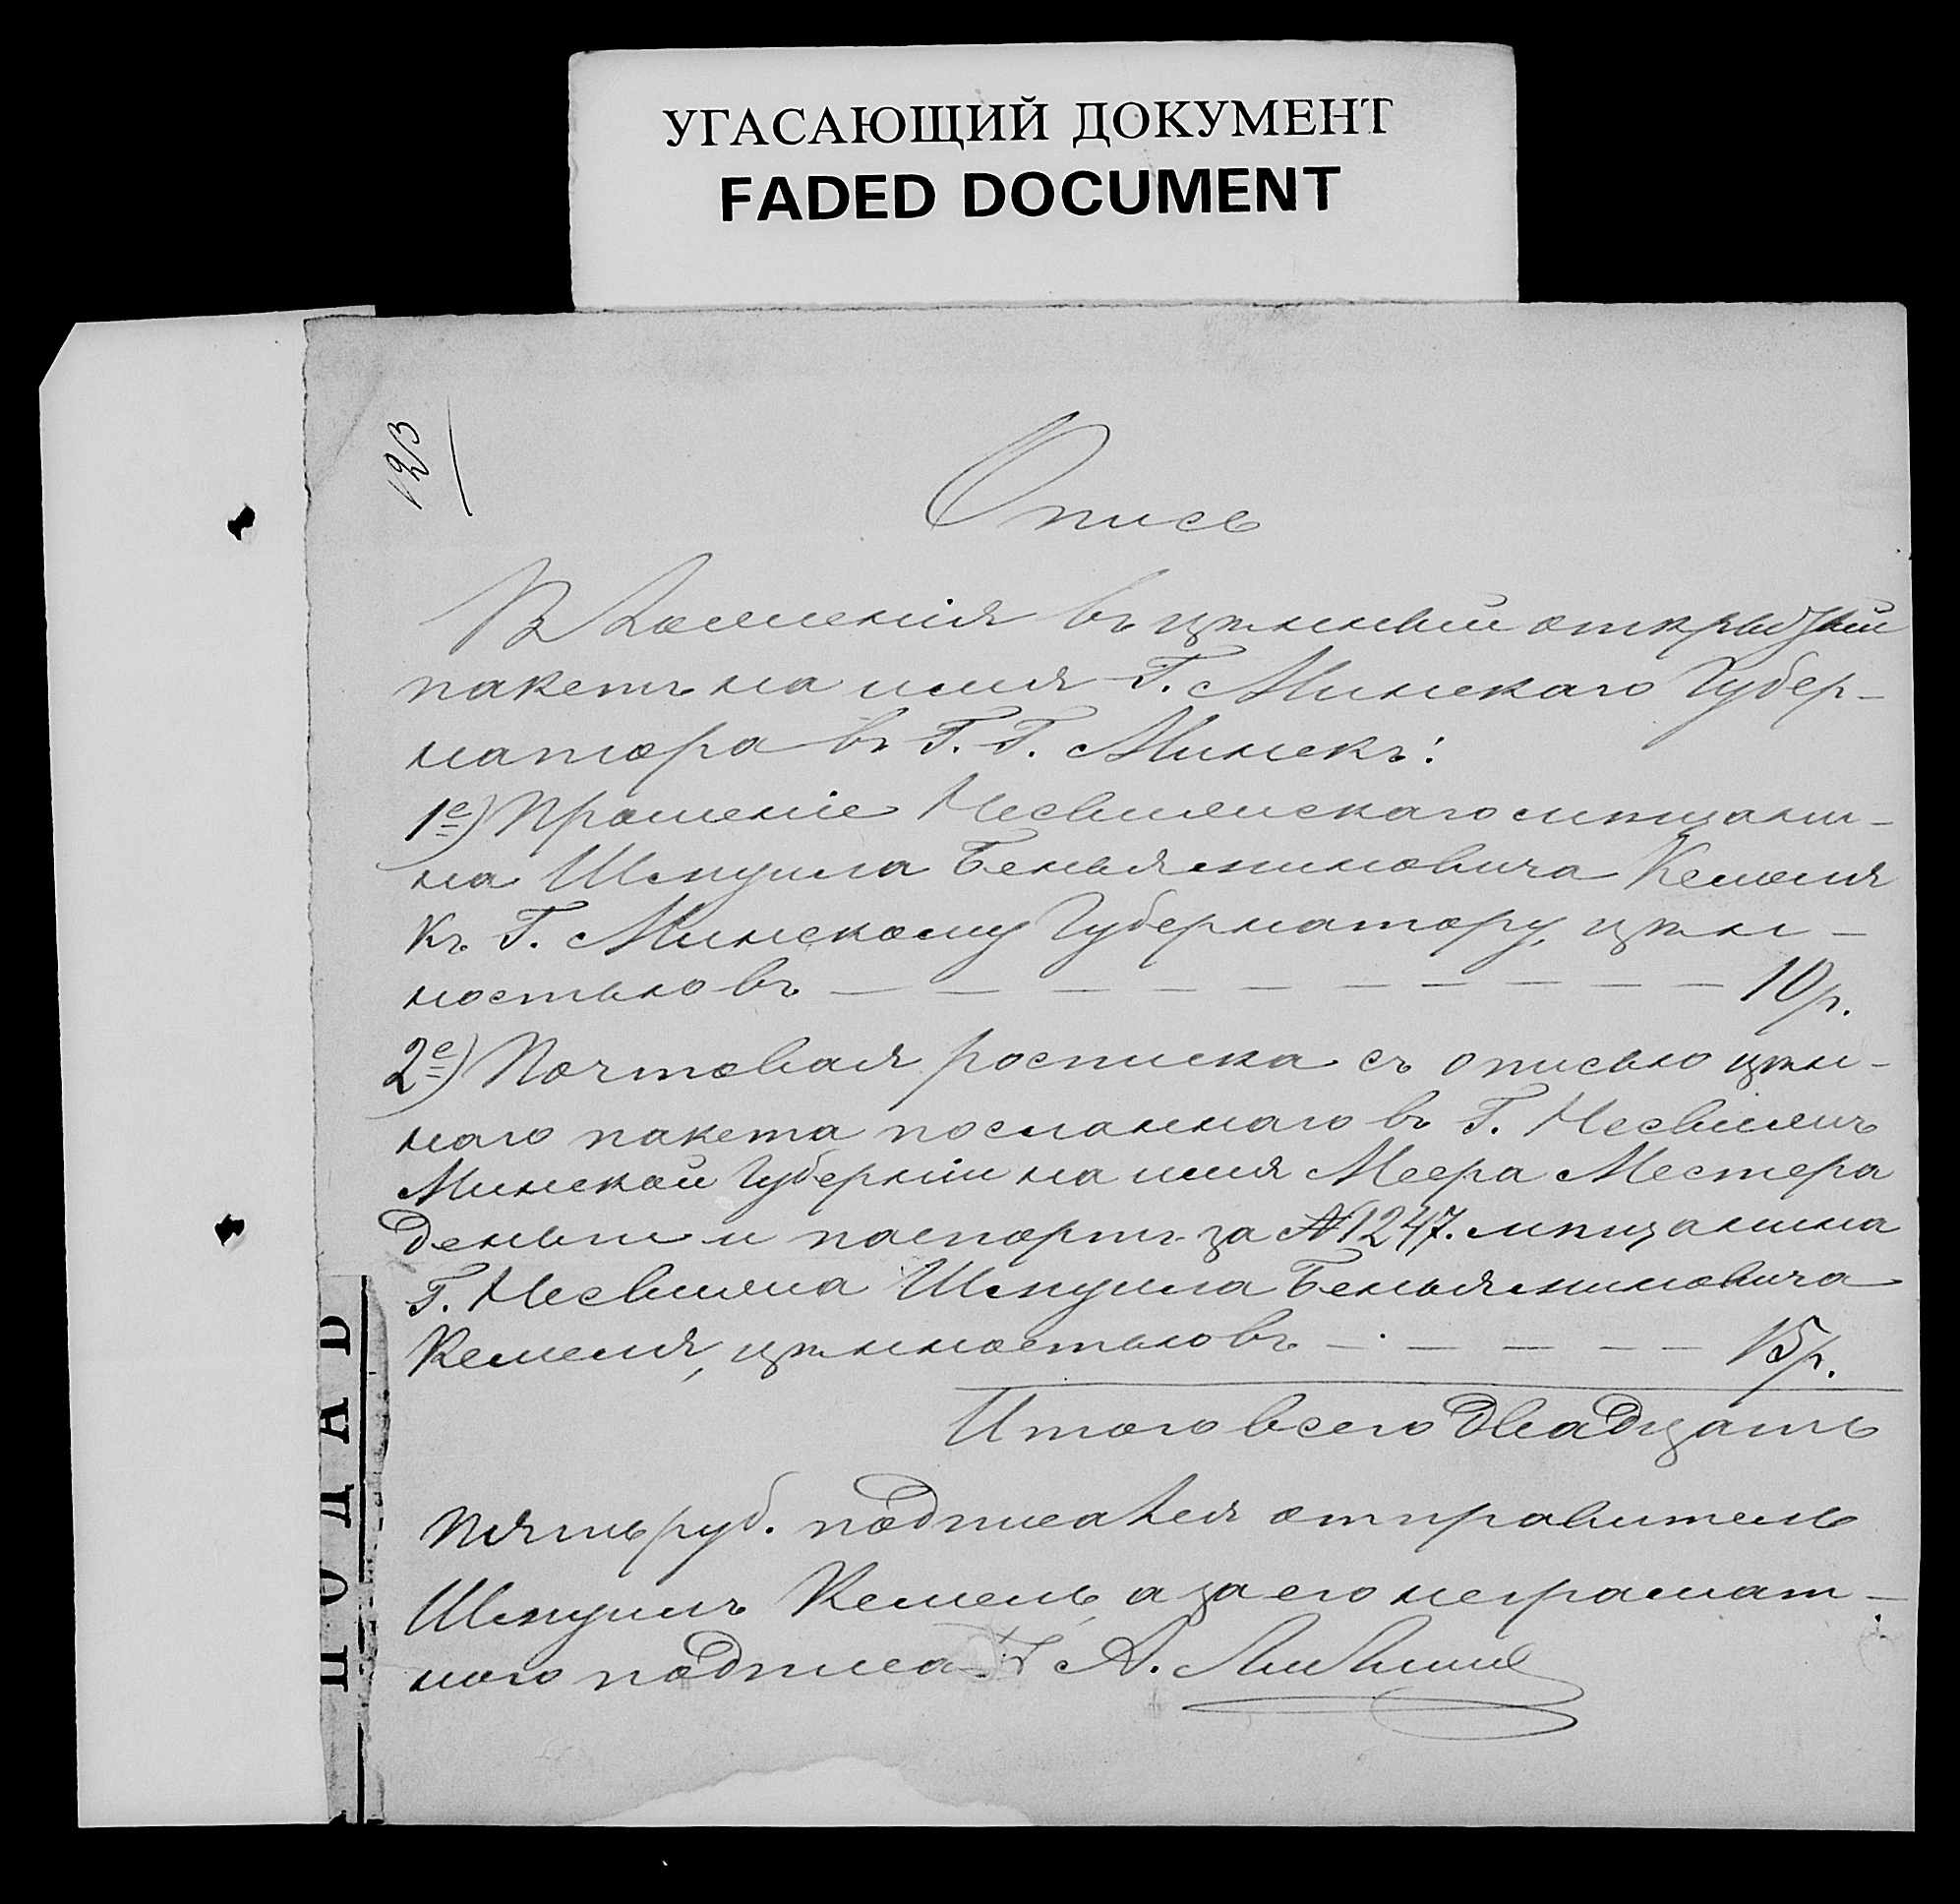 УГАСАЮЩИЙ ДОКУМЕНТ
FADED DOCUMENT
123
Опись
Вложенія въ цѣнный открытый
пакетъ на имя Г. Минскаго Губер-
натора въ Г. Г. Минскъ:
1е) Прошеніе Несвижскаго мѣщани-
на Шмуила Беньяминовича Кемеля
къ Г. Минскому Губернатору, цѣн-
ностью въ — — — — — — — — — 10 р.
2е) Почтовая росписка съ описью цѣн-
наго пакета посланнаго въ Г. Несвижъ
Минской Губерніи на имя Меера Местера
деньги и паспортъ за № 1247. мѣщанина
Г. Несвижа Шмуила Беньяминовича
Кемеля, цѣнностью въ — — — — — 15 р.
Итого всего двадцать
пять руб. подписался отправитель
Шмуилъ Кемель, а за его неграмат-
ного подписалъ А.
ПОДАД